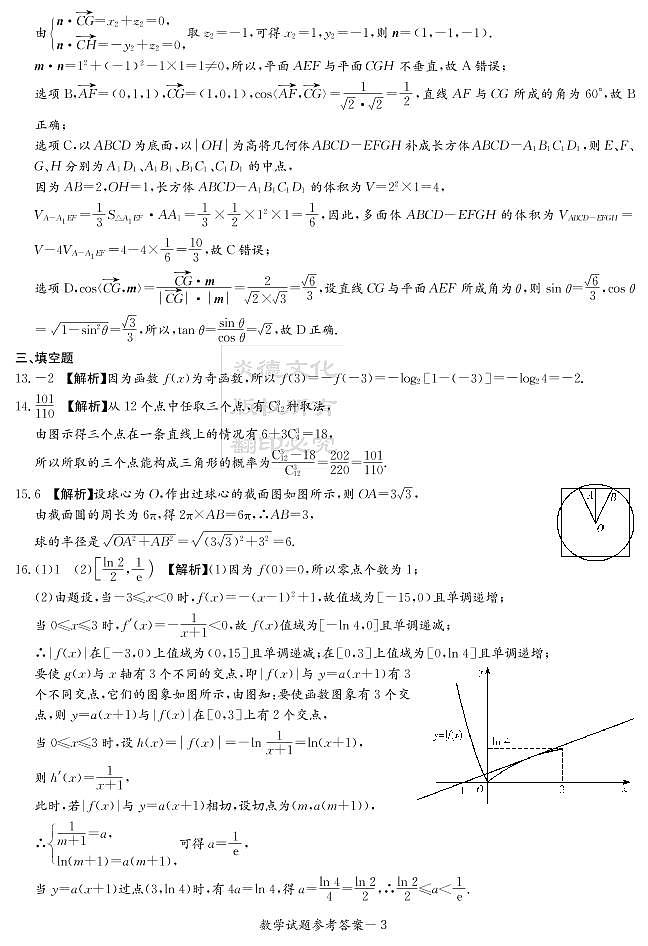 由{n·CG=x₂+z₂=0, n·CH=−y₂+z₂=0, 取 z₂=−1,可得 x₂=1,y₂=−1,则 n=(1,−1,−1).
m·n=1²+(−1)²−1×1=1≠0,所以,平面 AEF 与平面 CGH 不垂直,故 A 错误;
选项 B,AF=(0,1,1),CG=(1,0,1),cos⟨AF,CG⟩=1/(√2·√2)=1/2,直线 AF 与 CG 所成的角为 60°,故 B
正确;
选项 C,以 ABCD 为底面,以|OH|为高将几何体 ABCD−EFGH 补成长方体 ABCD−A₁B₁C₁D₁,则 E、F、
G、H 分别为 A₁D₁、A₁B₁、B₁C₁、C₁D₁ 的中点,
因为 AB=2,OH=1,长方体 ABCD−A₁B₁C₁D₁ 的体积为 V=2²×1=4,
V_{A−A₁EF}=1/3 S_{△A₁EF}·AA₁=1/3×1/2×1²×1=1/6,因此,多面体 ABCD−EFGH 的体积为 V_{ABCD−EFGH}=
V−4V_{A−A₁EF}=4−4×1/6=10/3,故 C 错误;
选项 D,cos⟨CG,m⟩=CG·m/(|CG|·|m|)=2/(√2×√3)=√6/3,设直线 CG 与平面 AEF 所成角为 θ,则 sin θ=√6/3,cos θ
=√(1−sin²θ)=√3/3,所以,tan θ=sin θ/cos θ=√2,故 D 正确.
三、填空题
13.−2 【解析】因为函数 f(x)为奇函数,所以 f(3)=−f(−3)=−log₂[1−(−3)]=−log₂4=−2.
14.101/110 【解析】从 12 个点中任取三个点,有 C³₁₂种取法,
由图示得三个点在一条直线上的情况有 6+3C³₄=18,
所以所取的三个点能构成三角形的概率为(C³₁₂−18)/C³₁₂=202/220=101/110.
15.6 【解析】设球心为 O,作出过球心的截面图如图所示,则 OA=3√3,
由截面圆的周长为 6π,得 2π×AB=6π,∴AB=3,
球的半径是√(OA²+AB²)=√((3√3)²+3²)=6.
A B
O
16.(1)1 (2)[ln 2/2,1/e) 【解析】(1)因为 f(0)=0,所以零点个数为 1;
(2)由题设,当−3≤x<0 时,f(x)=−(x−1)²+1,故值域为[−15,0)且单调递增;
当 0≤x≤3 时,f′(x)=−1/(x+1)<0,故 f(x)值域为[−ln 4,0]且单调递减;
∴|f(x)|在[−3,0)上值域为(0,15]且单调递减;在[0,3]上值域为[0,ln 4]且单调递增;
要使 g(x)与 x 轴有 3 个不同的交点,即|f(x)|与 y=a(x+1)有 3
个不同交点,它们的图象如图所示,由图知:要使函数图象有 3 个交
点,则 y=a(x+1)与|f(x)|在[0,3]上有 2 个交点,
当 0≤x≤3 时,设 h(x)=|f(x)|=−ln 1/(x+1)=ln(x+1),
则 h′(x)=1/(x+1),
此时,若|f(x)|与 y=a(x+1)相切,设切点为(m,a(m+1)),
y
y=|f(x)|
ln 4
−1 O 3 x
∴{1/(m+1)=a, ln(m+1)=a(m+1), 可得 a=1/e,
当 y=a(x+1)过点(3,ln 4)时,有 4a=ln 4,得 a=ln 4/4=ln 2/2,∴ln 2/2≤a<1/e.
数学试题参考答案−3
炎德文化
版权所有
翻印必究